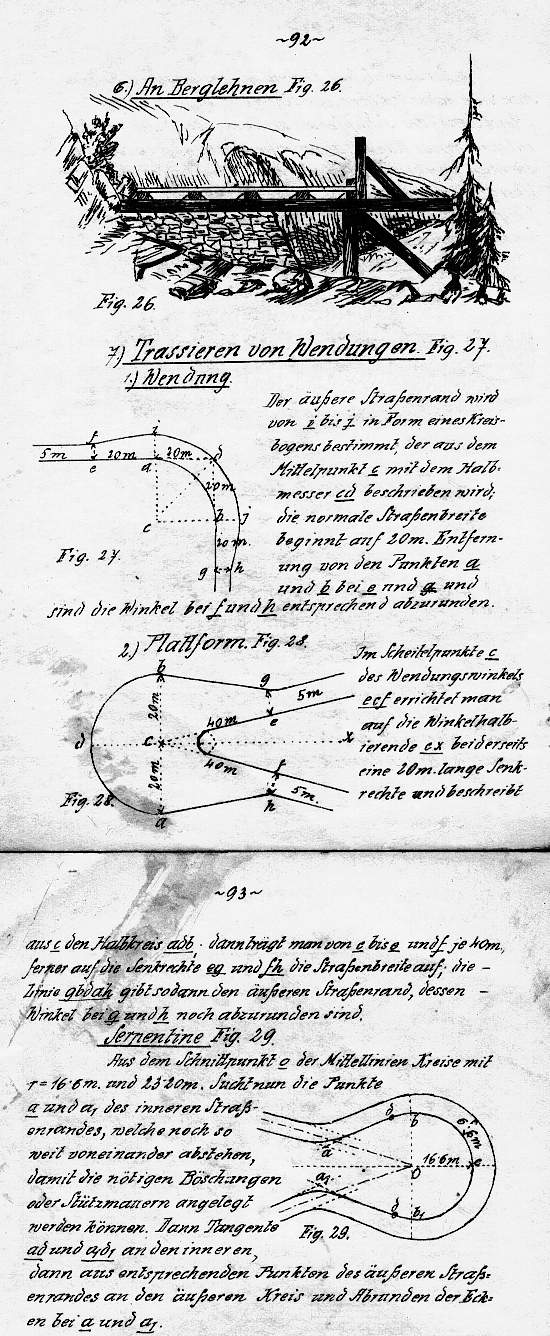 ~92~
6.) An Berglehnen Fig. 26.
Fig. 26.
7.) Trassieren von Wendungen. Fig. 27.
1.) Wendung.
Der äußere Straßenrand wird
von i bis j in Form eines Kreis-
bogens bestimmt, der aus dem
Mittelpunkt c mit dem Halb-
messer cd beschrieben wird;
die normale Straßenbreite
beginnt auf 20m. Entfern-
ung von den Punkten a
und b bei e und g und
sind die Winkel bei f und h entsprechend abzurunden.
f
i
5m
20m
20m
d
e
a
20m
c
b
j
20m.
g
h
Fig. 27.
2.) Plattform. Fig. 28.
Im Scheitelpunkte c
des Wendungswinkels
ecf errichtet man
auf die Winkelhalb-
ierende cx beiderseits
eine 20m. lange Senk-
rechte und beschreibt
b
g
5m
20m
40m
e
d
c
x
40m
20m
f
5m.
h
a
Fig. 28.
~93~
aus c den Halbkreis adb; dann trägt man von c bis e und f je 40m,
ferner auf die Senkrechte eg und fh die Straßenbreite auf; die -
Linie gbdah gibt sodann den äußeren Straßenrand, dessen -
Winkel bei g und h noch abzurunden sind.
Serpentine Fig. 29.
Aus dem Schnittpunkt o der Mittellinien Kreise mit
r = 16·6m. und 23·20m. Sucht nun die Punkte
a und a₁ des inneren Straß-
enrandes, welche noch so
weit voneinander abstehen,
damit die nötigen Böschungen
oder Stützmauern angelegt
werden können. Dann Tangente
ad und a₁d₁ an den inneren,
dann aus entsprechenden Punkten des äußeren Straß=
enrandes an den äußeren Kreis und Abrunden der Eck=
en bei a und a₁.
d
b
f
6·6m
a
16·6m
e
o
a₁
b₁
Fig. 29.